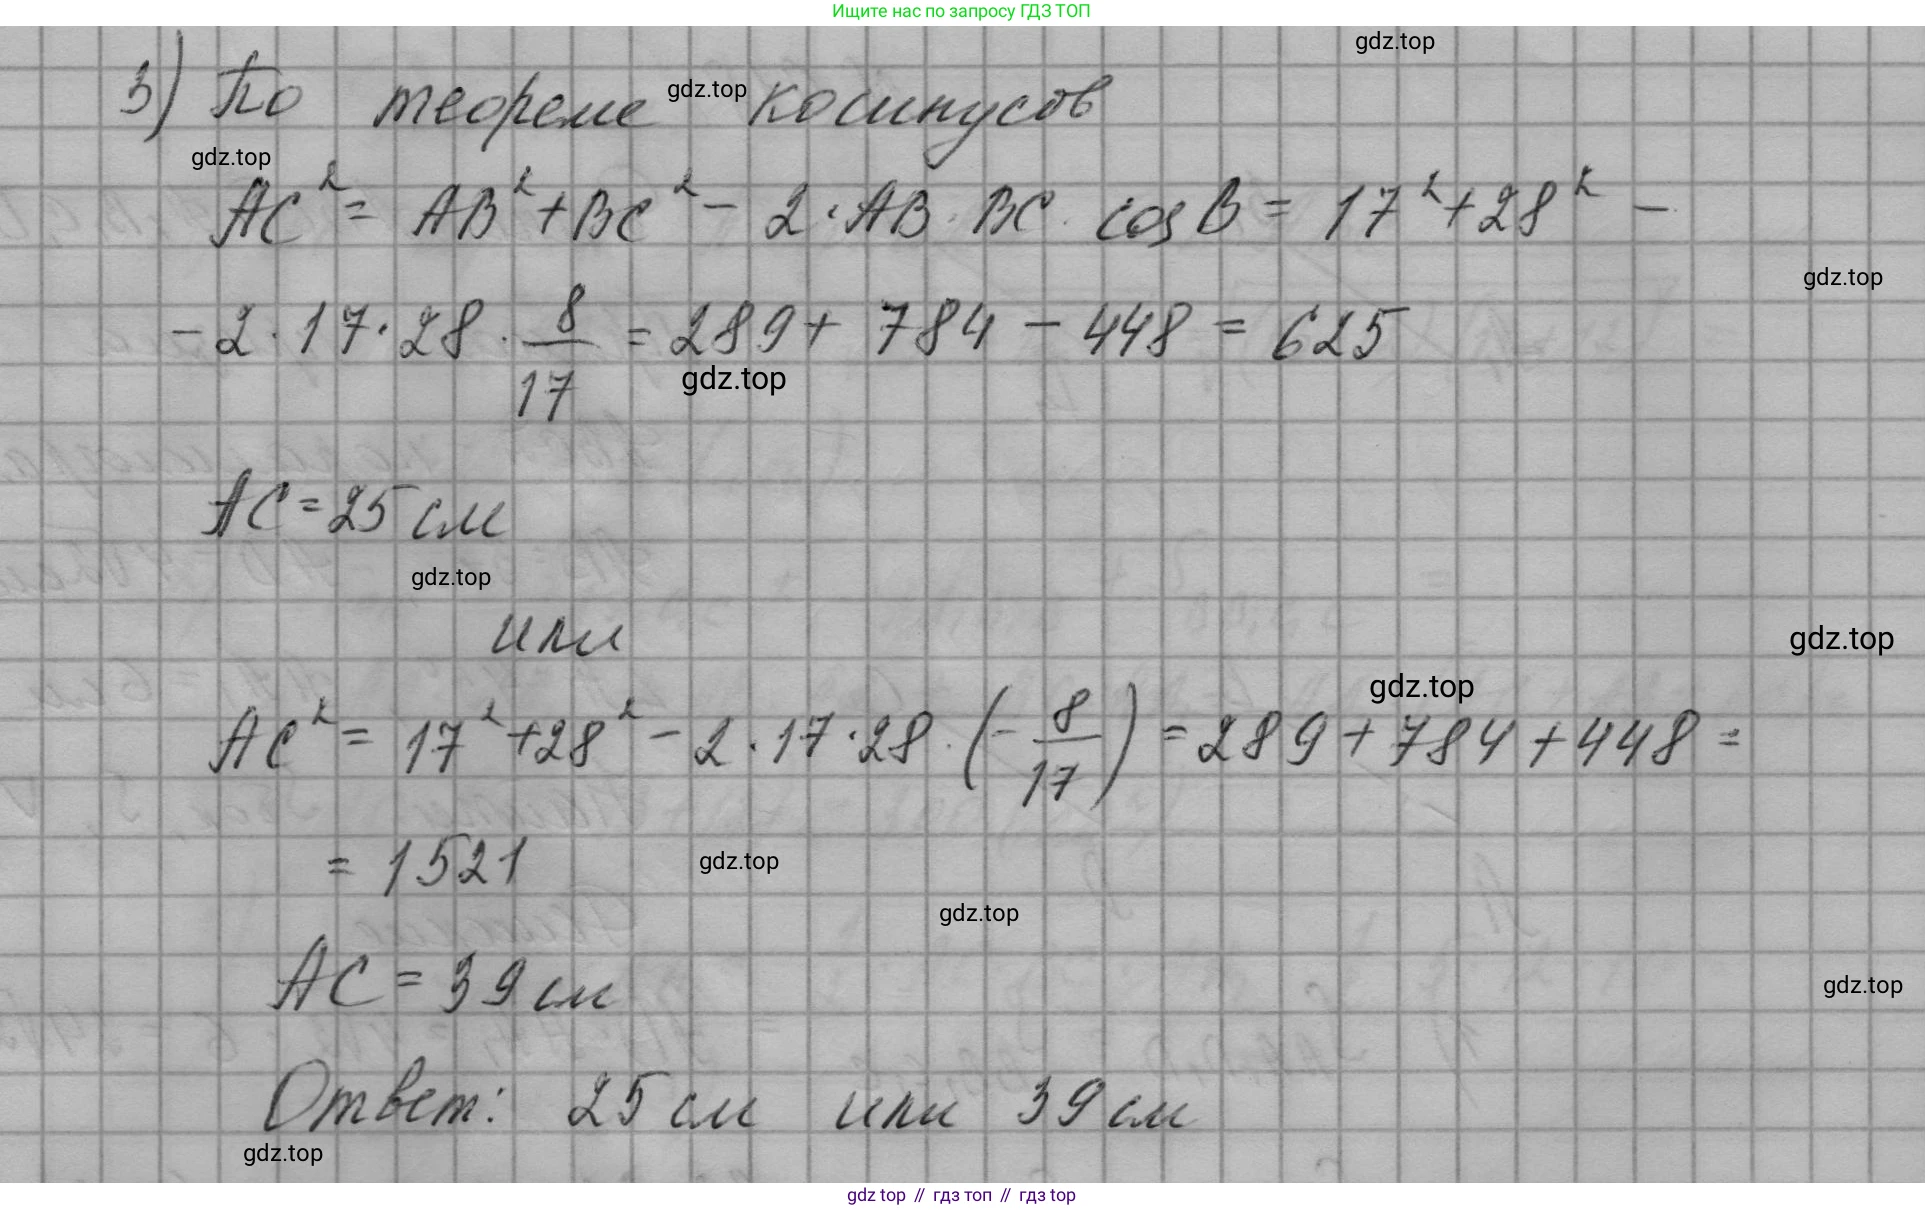 Ищите нас по запросу ГДЗ ТОП
gdz.top
3) По теореме косинусов
gdz.top
gdz.top
AC² = AB² + BC² - 2 · AB · BC · cos B = 17² + 28² -
gdz.top
- 2 · 17 · 28 · 8/17 = 289 + 784 - 448 = 625
gdz.top
AC = 25 см
gdz.top
или
gdz.top
gdz.top
AC² = 17² + 28² - 2 · 17 · 28 · (- 8/17) = 289 + 784 + 448 =
= 1521
gdz.top
gdz.top
AC = 39 см
gdz.top
Ответ: 25 см или 39 см
gdz.top
gdz top // гдз топ // гдз top